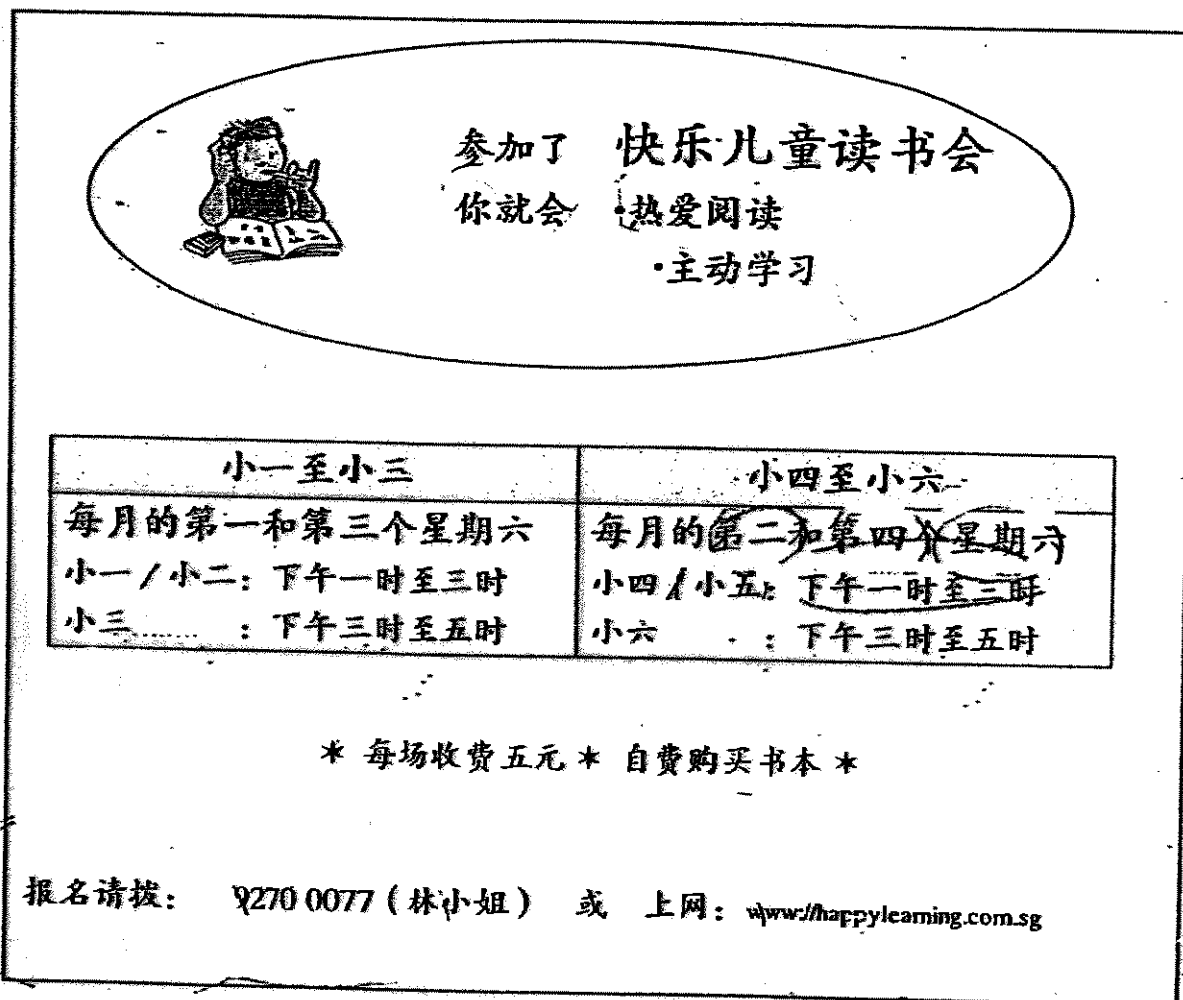 参加了 快乐儿童读书会
你就会 •热爱阅读
•主动学习
小一至小三
每月的第一和第三个星期六
小一/小二：下午一时至三时
小三........：下午三时至五时
小四至小六
每月的第二和第四个星期六
小四/小五：下午一时至三时
小六 ：下午三时至五时
* 每场收费五元 * 自费购买书本 *
报名请拨： 9270 0077（林小姐） 或 上网：www//happylearning.com.sg